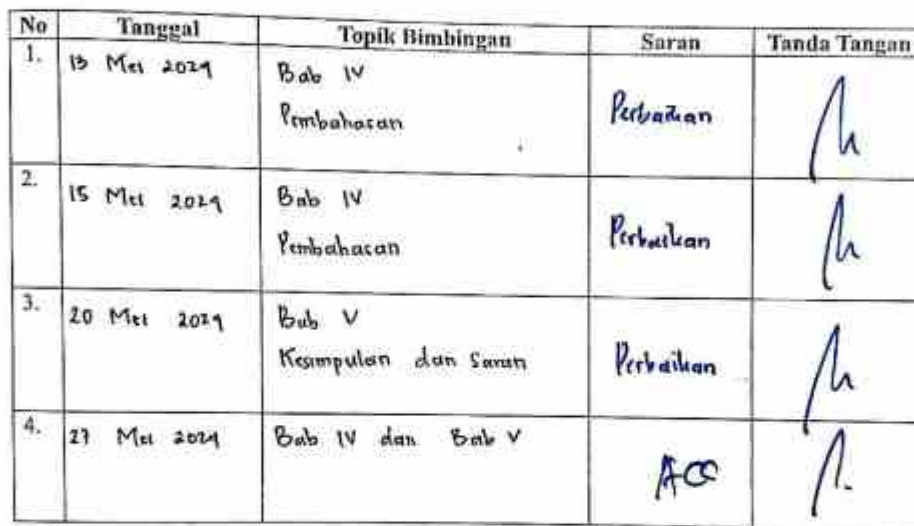 No Tanggal Topik Bimbingan Saran Tanda Tangan
1. 13 Mei 2024 Bab IV
Pembahasan Perbaikan
2. 15 Mei 2024 Bab IV
Pembahasan Perbaikan
3. 20 Mei 2024 Bab V
Kesimpulan dan Saran Perbaikan
4. 27 Mei 2024 Bab IV dan Bab V
ACC